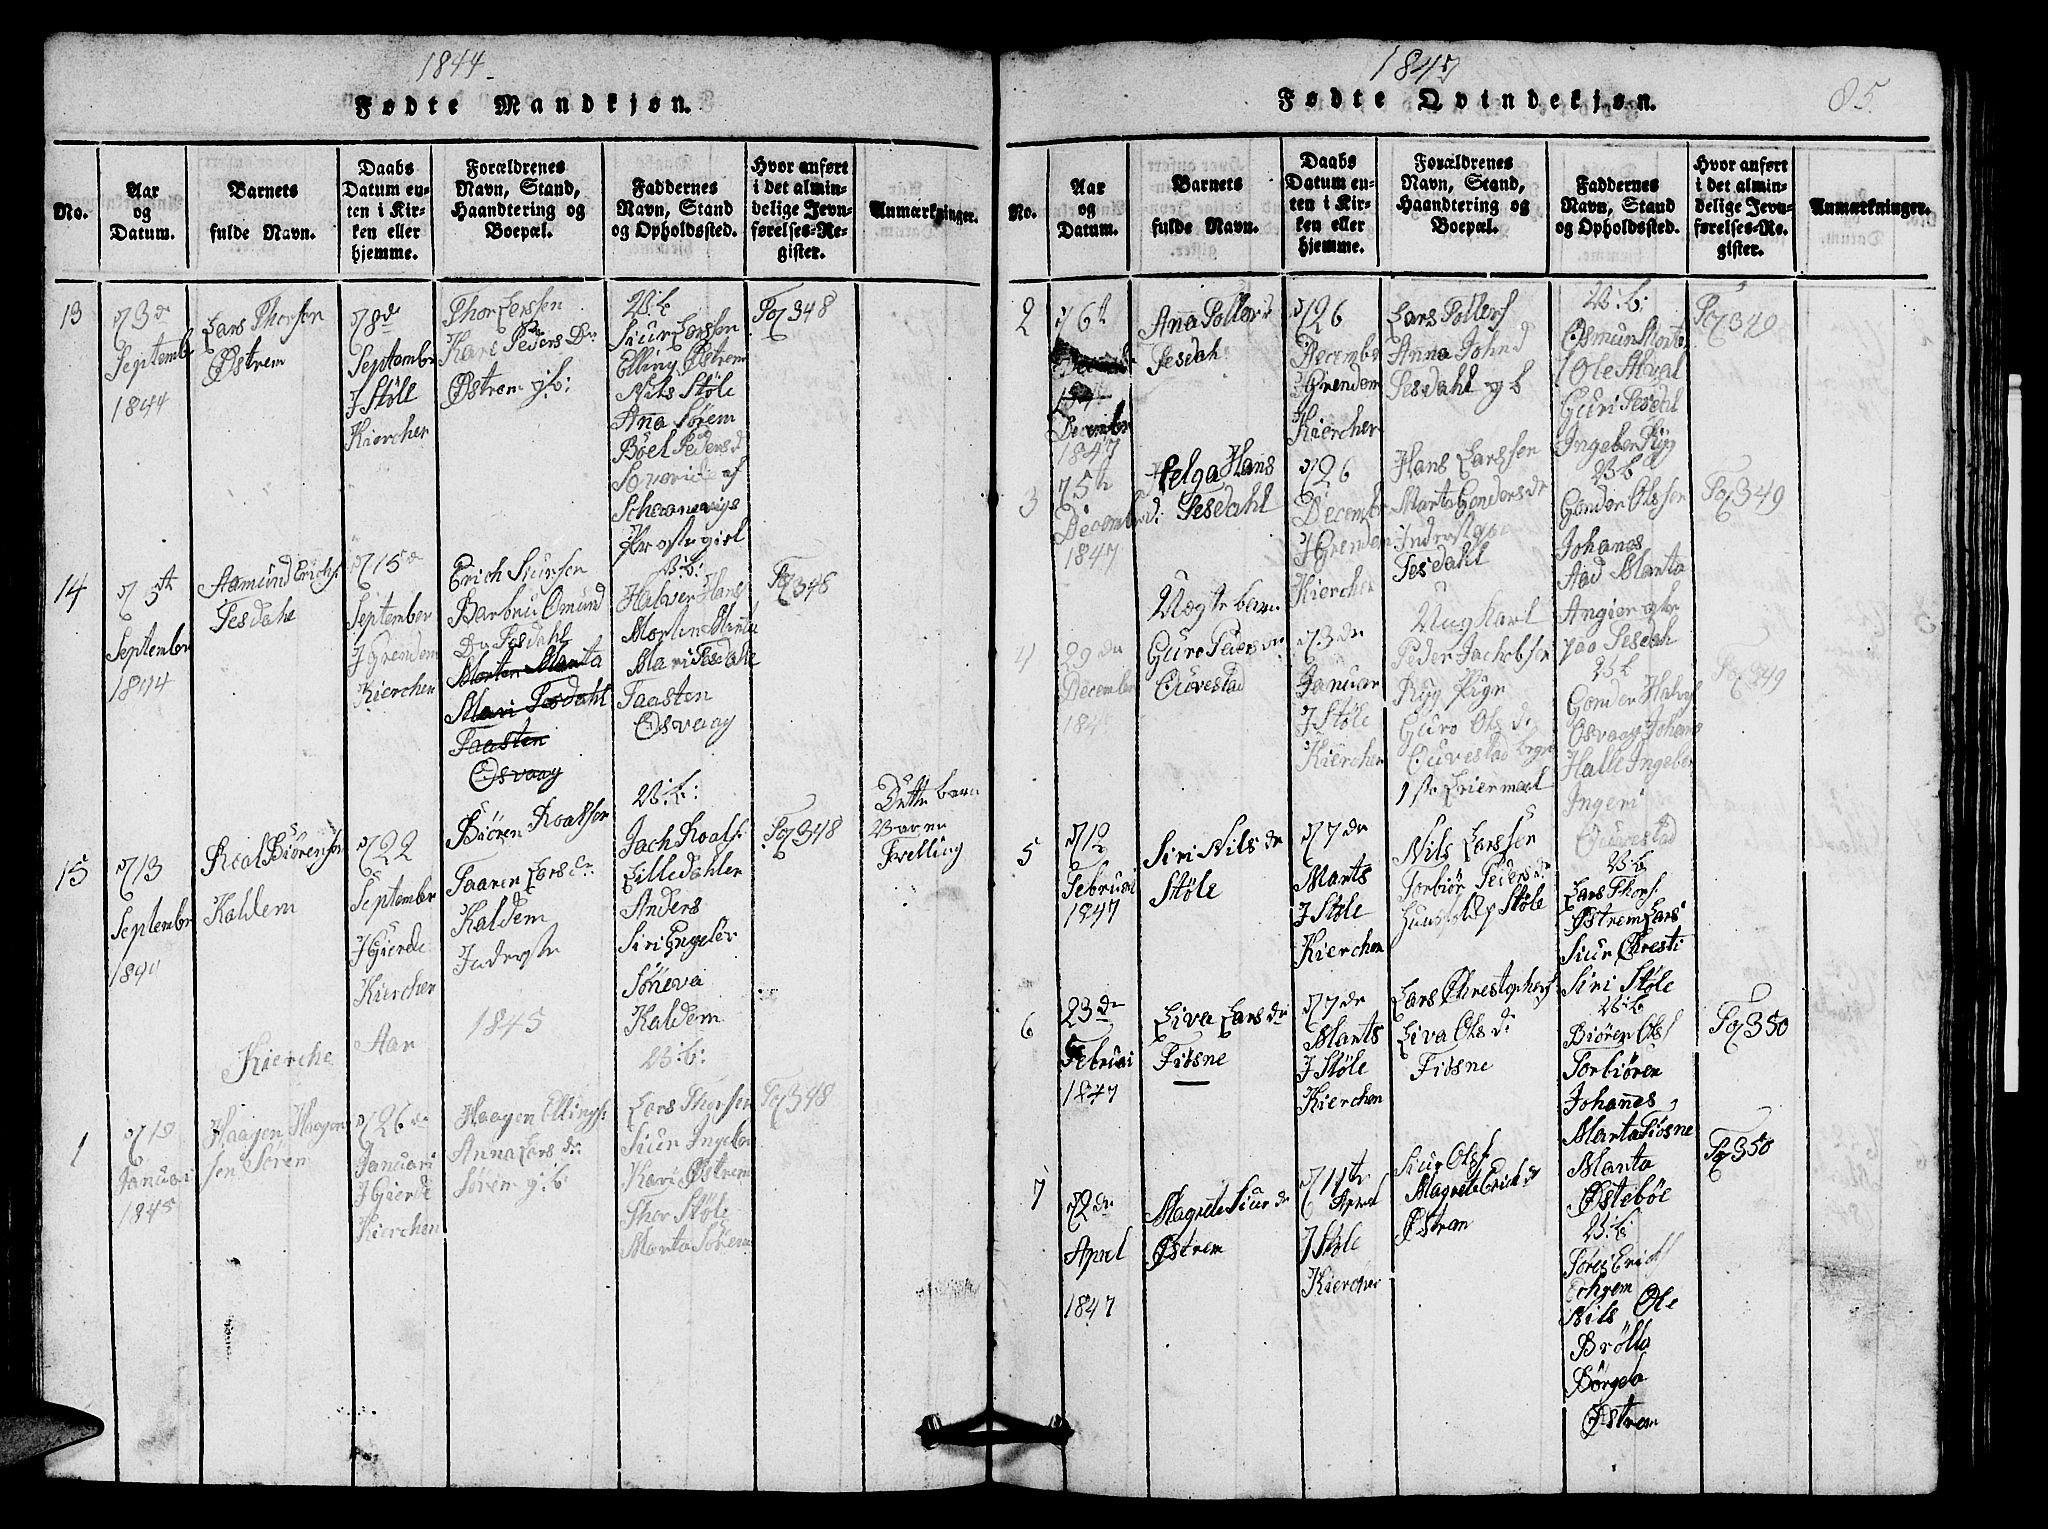 1844
Fødte Mandkjøn.
No.
Aar
og
Datum.
Barnets
fulde Navn.
Daabs
Datum en-
ten i Kir-
ken eller
hjemme.
Forældrenes
Navn, Stand,
Haandtering og
Boepæl.
Faddernes
Navn, Stand
og Opholdssted.
Hvor anført
i det almin-
delige Jevn-
førelses-Re-
gister.
Anmærkninger.
13
3de
Septembr
1844
Lars Thorsen
Østrem
8de
Septembr
J Støle
Kierchen
Thor Larssen
Kari Peders Dr
Østrem g.b:
V:b:
Siur Larssen
Elling Østrem
Nils Støle
Anna Sørem
Böel Peders d
af
Pg 348
14
5te
September
1844
Aamund Erichs
Tesdahl
15de
September
J Grendem
Kierchen
Erich Siursen
Barbru Omund
Dr Tesdahl
Morten Manta
Mari Tesdahl
Taasten
Osvaag
V:b:
Halver Hans
Morten Manta
Mari Tesdahl
Taasten
Osvaag
Pg 348
15
13
Septembr
1844
Roal Biörensen
Kaldem
22
Septembr
J Gierde
Kierchen
Biören Roalsen
Taaren Lars dr
Kaldem
Inderste
V:b:
Jach Roals
Lilledahlen
Anders
Siri Engelev
Söneva
Kaldem
Pg 348
Dette barn
Var en
Tvelling
Kierche Aar 1845
V:b:
1
Januari
1845
Haagen Haagen
sen Sörem
26de
Januari
J Gierde
Kierchen
Haagen Ellings
Anna Lars dr
Sörem g:b
Lars Thorsen
Siur Ingebor
Kari Østrem
Thor Støle
Marta Sörem
Pg 348
1847
85.
Fødte Qvindekjøn.
No.
Aar
og
Datum.
Barnets
fulde Navn.
Daabs
Datum en-
ten i Kir-
ken eller
hjemme.
Forældrenes
Navn, Stand,
Haandtering og
Boepæl.
Faddernes
Navn, Stand
og Opholdssted.
Hvor anført
i det almin-
delige Jevn-
førelses-Re-
gister.
Anmærkninger.
2
6te
Decembr
1847
Anna Pollers
Tesdah
26
Decembr
J Grendem
Kierchen
Lars Pollers
Anna Johnd
Tesdahl g b
V:b:
Osmun Morte
Ole
Guri Tesdal
Ingebor Ryg
Pg 349
3
5te
Decembr
1847
Helga Hans
d: Tesdahl
26
Decembr
J Grenden
Kierchen
Hans Larssen
Marta Gonders dr
Inderste
Tesdahl
V:b
Gonder Olssen
Johanes
Aad Manta
Tesdah
Pg 349
4
29de
December
184
Uægte barn
Guro Peders dr
Ouvestad
3de
Januar
J Støle
Kierchen
Ungkarl
Peder Jachobsen
Ryg Pige
Guro Ols dr
Ouvestad begge
1ste Leiermaal
V:b
Gonder Halvs
Osvaag Johans
Halle Ingebor
Ingeri
Ouvestad
Pg 349
5
12
Februari
1847
Siri Nils dr
Støle
7de
Marts
J Støle
Kierchen
Nils Larssen
Torbiör Peders dr
Støle
V:b
Lars Thors
Østrem Lars
Siur Christi
Siri Støle
6
23de
Februari
1847
Liva Lars dr
Fiøsne
7de
Marts
J Støle
Kierchen
Lars Christophers
Liva Ols dr
Fiøsne
V:b
Biören Ols
Torbiören
Johanes
Marta Fiøsne
Manta
Østebøe
Pg 350
7
2de
April
1847
Magrete Siur dr
Østrem
11te
April
J Støle
Kierchen
Siur Ols
Magrete Erich dr
Østrem
V:b
Tores Erichs
Nils Ole
Brölla
Börgela
Østrem
Pg 350